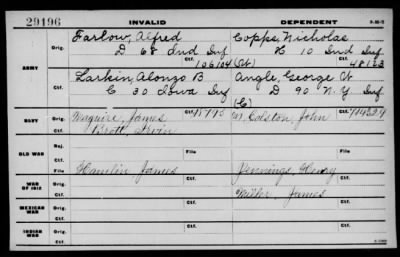 29196 INVALID DEPENDENT
ARMY
Orig. Farlow, Alfred Copps, Nicholas
D 68 Ind Inf K 10 Ind Inf
Ctf. 106104 (Ct) Ctf. 48123
Orig. Larkin, Alonzo B Angle, George W
C 30 Iowa Inf D 90 N.Y. Inf
Ctf. (C) Ctf.
NAVY
Orig. Maguire, James Ctf. 15793 McColston, John Ctf.
Brott, Irvin
Ctf.
OLD WAR
Inj.
Ctf. File File
WAR OF 1812
Orig. Hamlin, James Jennings, Henry
Ctf. Miller, James
MEXICAN WAR
Orig. Ctf. Ctf.
Ctf.
INDIAN WAR
Orig. Ctf. Ctf.
Ctf.